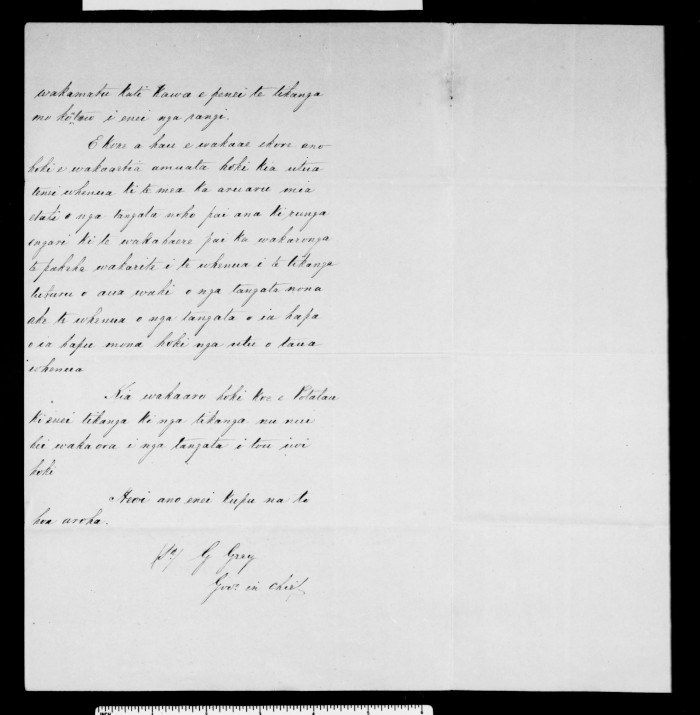 wakamatu kati kawa e penei te tikanga
mo kotou i enei nga rangi.
E kore a hau e wakaae ekore ano
hoki e wakaaetia amuata hoki kia utua
tenei whenua ki te mea ka aruaru mia
etahi o nga tangata noho pai ana ki runga
engari ki te wakahaere pai ka wakaronga
te pakeha wakarite i te whenua i te tikanga
tuturu o aua wahi o nga tangata nona
ake te whenua o nga tangata o ia hapa
o ia hapu mona hoki nga utu o taua
whenua
Kia wakaaro hoki koe e Potatau
ki enei tikanga ki nga tikanga nu nui
hei waka ora i nga tangata i tou iwi
hoki
Heoi ano enei kupu na to
hoa aroha.
G Grey
Govr in chief